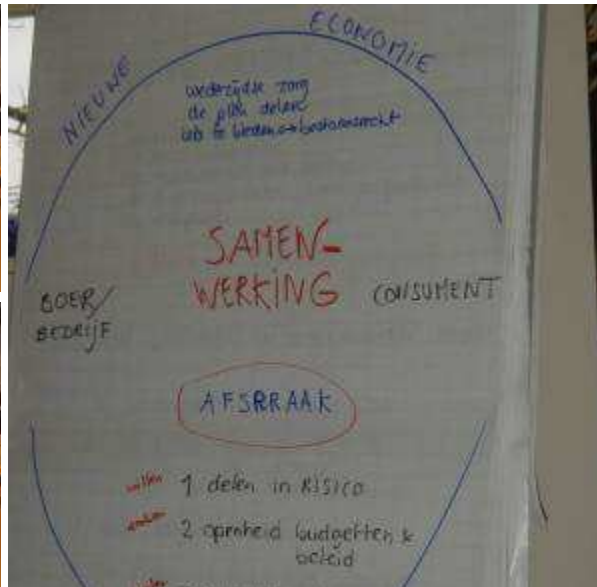 NIEUWE ECONOMIE
wederzijdse zorg
de delen
te bieden → bestaansrecht
SAMEN-
WERKING
BOER/
BEDRIJF
CONSUMENT
AFSPRAAK
willen 1 delen in RISICO
2 openheid budgetten &
beleid